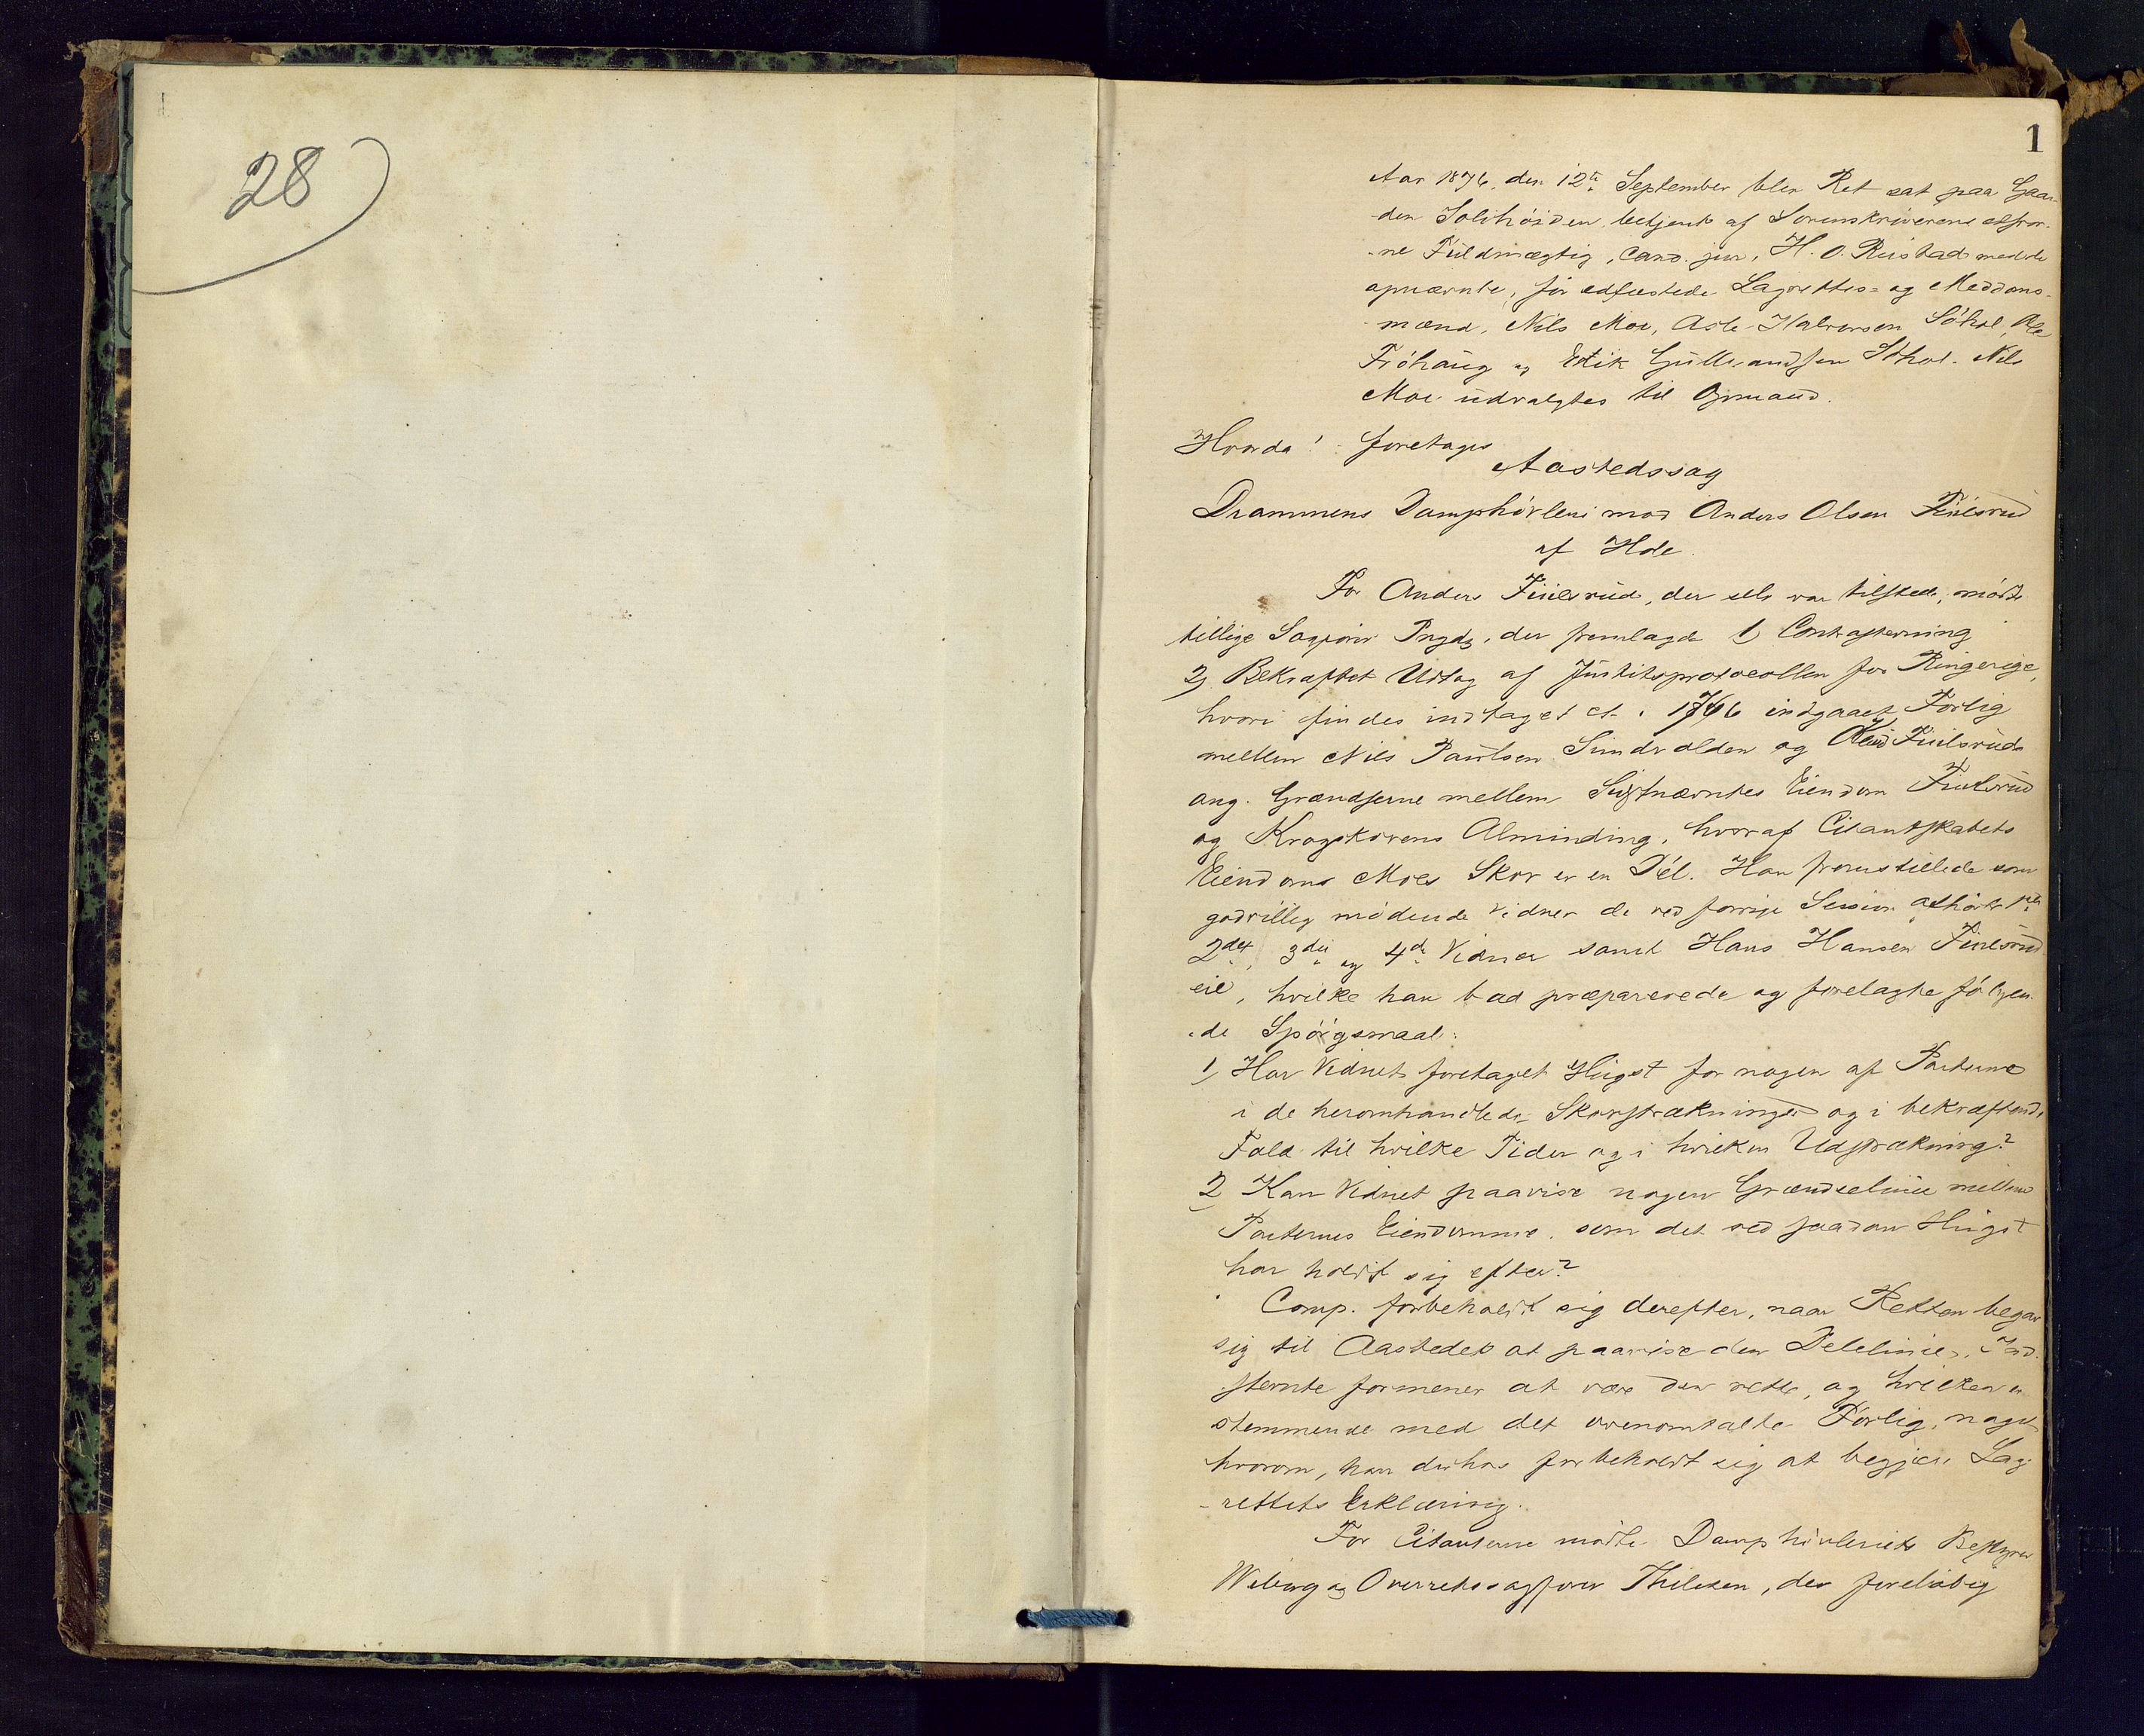 28
1
Aar 1876, den 12te September blev Ret sat paa Gaar-
den Solihøiden, betjent af Sorenskriverens edsvor-
ne Fuldmægtig, Cand. jur. H. O. Rustad med de
opnævnte, før edfæstede Lagrettes- og Meddoms-
mænd, Nils Moe, Asle Halvorsen Søhol, Ole
Frøhaug og Erik Gulbrandsen Søhol. Nils
Moe udvalgtes til Ormand.
Hvorda! foretages
Aastedssag
Drammens Damphøvleri mod Anders Olsen Fiulsrud
af Hole.
For Anders Fiulsrud, der selv var tilstede, mødte
tillige Sagfører Prydz, der fremlagde 1) Contrastevning
2) Bekræftet Udtog af Justitsprotocollen for Ringerige,
hvori findes indtaget et i 1766 indgaaet Forlig
mellem Nils Paulsen Sundvolden og Knud Fiulsrud
ang. Grændserne mellem Sidstnævntes Eiendom Fiulsrud
og Krogskovens Alminding, hvoraf Citantskabets
Eiendoms Moes Skov er en Del. Han fremstillede som
godvillig mødende Vidner de ved forrige Session afhørte 1ste
2det, 3die og 4de Vidner samt Hans Hansen Fiulsrud-
eie, hvilke han bad præparerede og forelagte følgen-
de Spørgsmaal:
1) Har Vidnet foretaget Hugst for nogen af Parterne
i de heromhandlede Skovstrækninger og i bekræftende
Fald til hvilke Tider og i hvilken Udstrækning?
2) Kan Vidnet paavise nogen Grændselinie mellem
Parternes Eiendomme, som det ved saadan Hugst
har holdt sig efter?
Comp. forbeholdt sig derefter, naar Retten begav
sig til Aastedet at paavise den Delelinie, Ind-
stevnte formener at være den rette, og hvilken er
stemmende med det ovenomtalte Forlig, noget
hvorom, han derhos forbeholdt sig at begjære Lag-
rettets Erklæring.
For Citanterne mødte Damphøvleriets Bestyrer
Wiborg og Overretssagfører Thilesen, der foreløbig